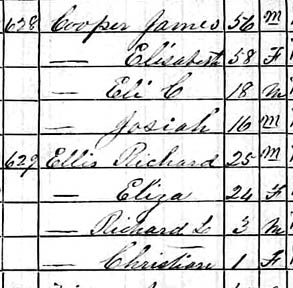 628 Cooper James 56 M
— Elisabeth 58 F
— Eli C 18 M
— Josiah 16 M
629 Ellis Richard 25 M
— Eliza 24 F
— Richard L 3 M
— Christian 1 F